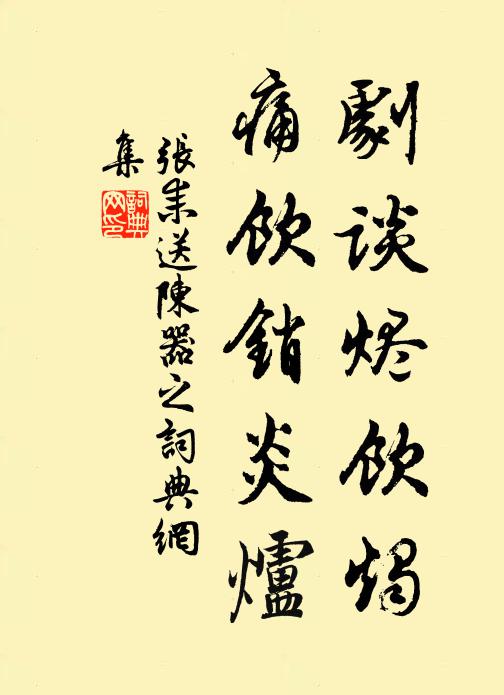 劇談烬飲燭
痛飲銷炎爐
張耒送陳器之詞典網
集
詞典網印